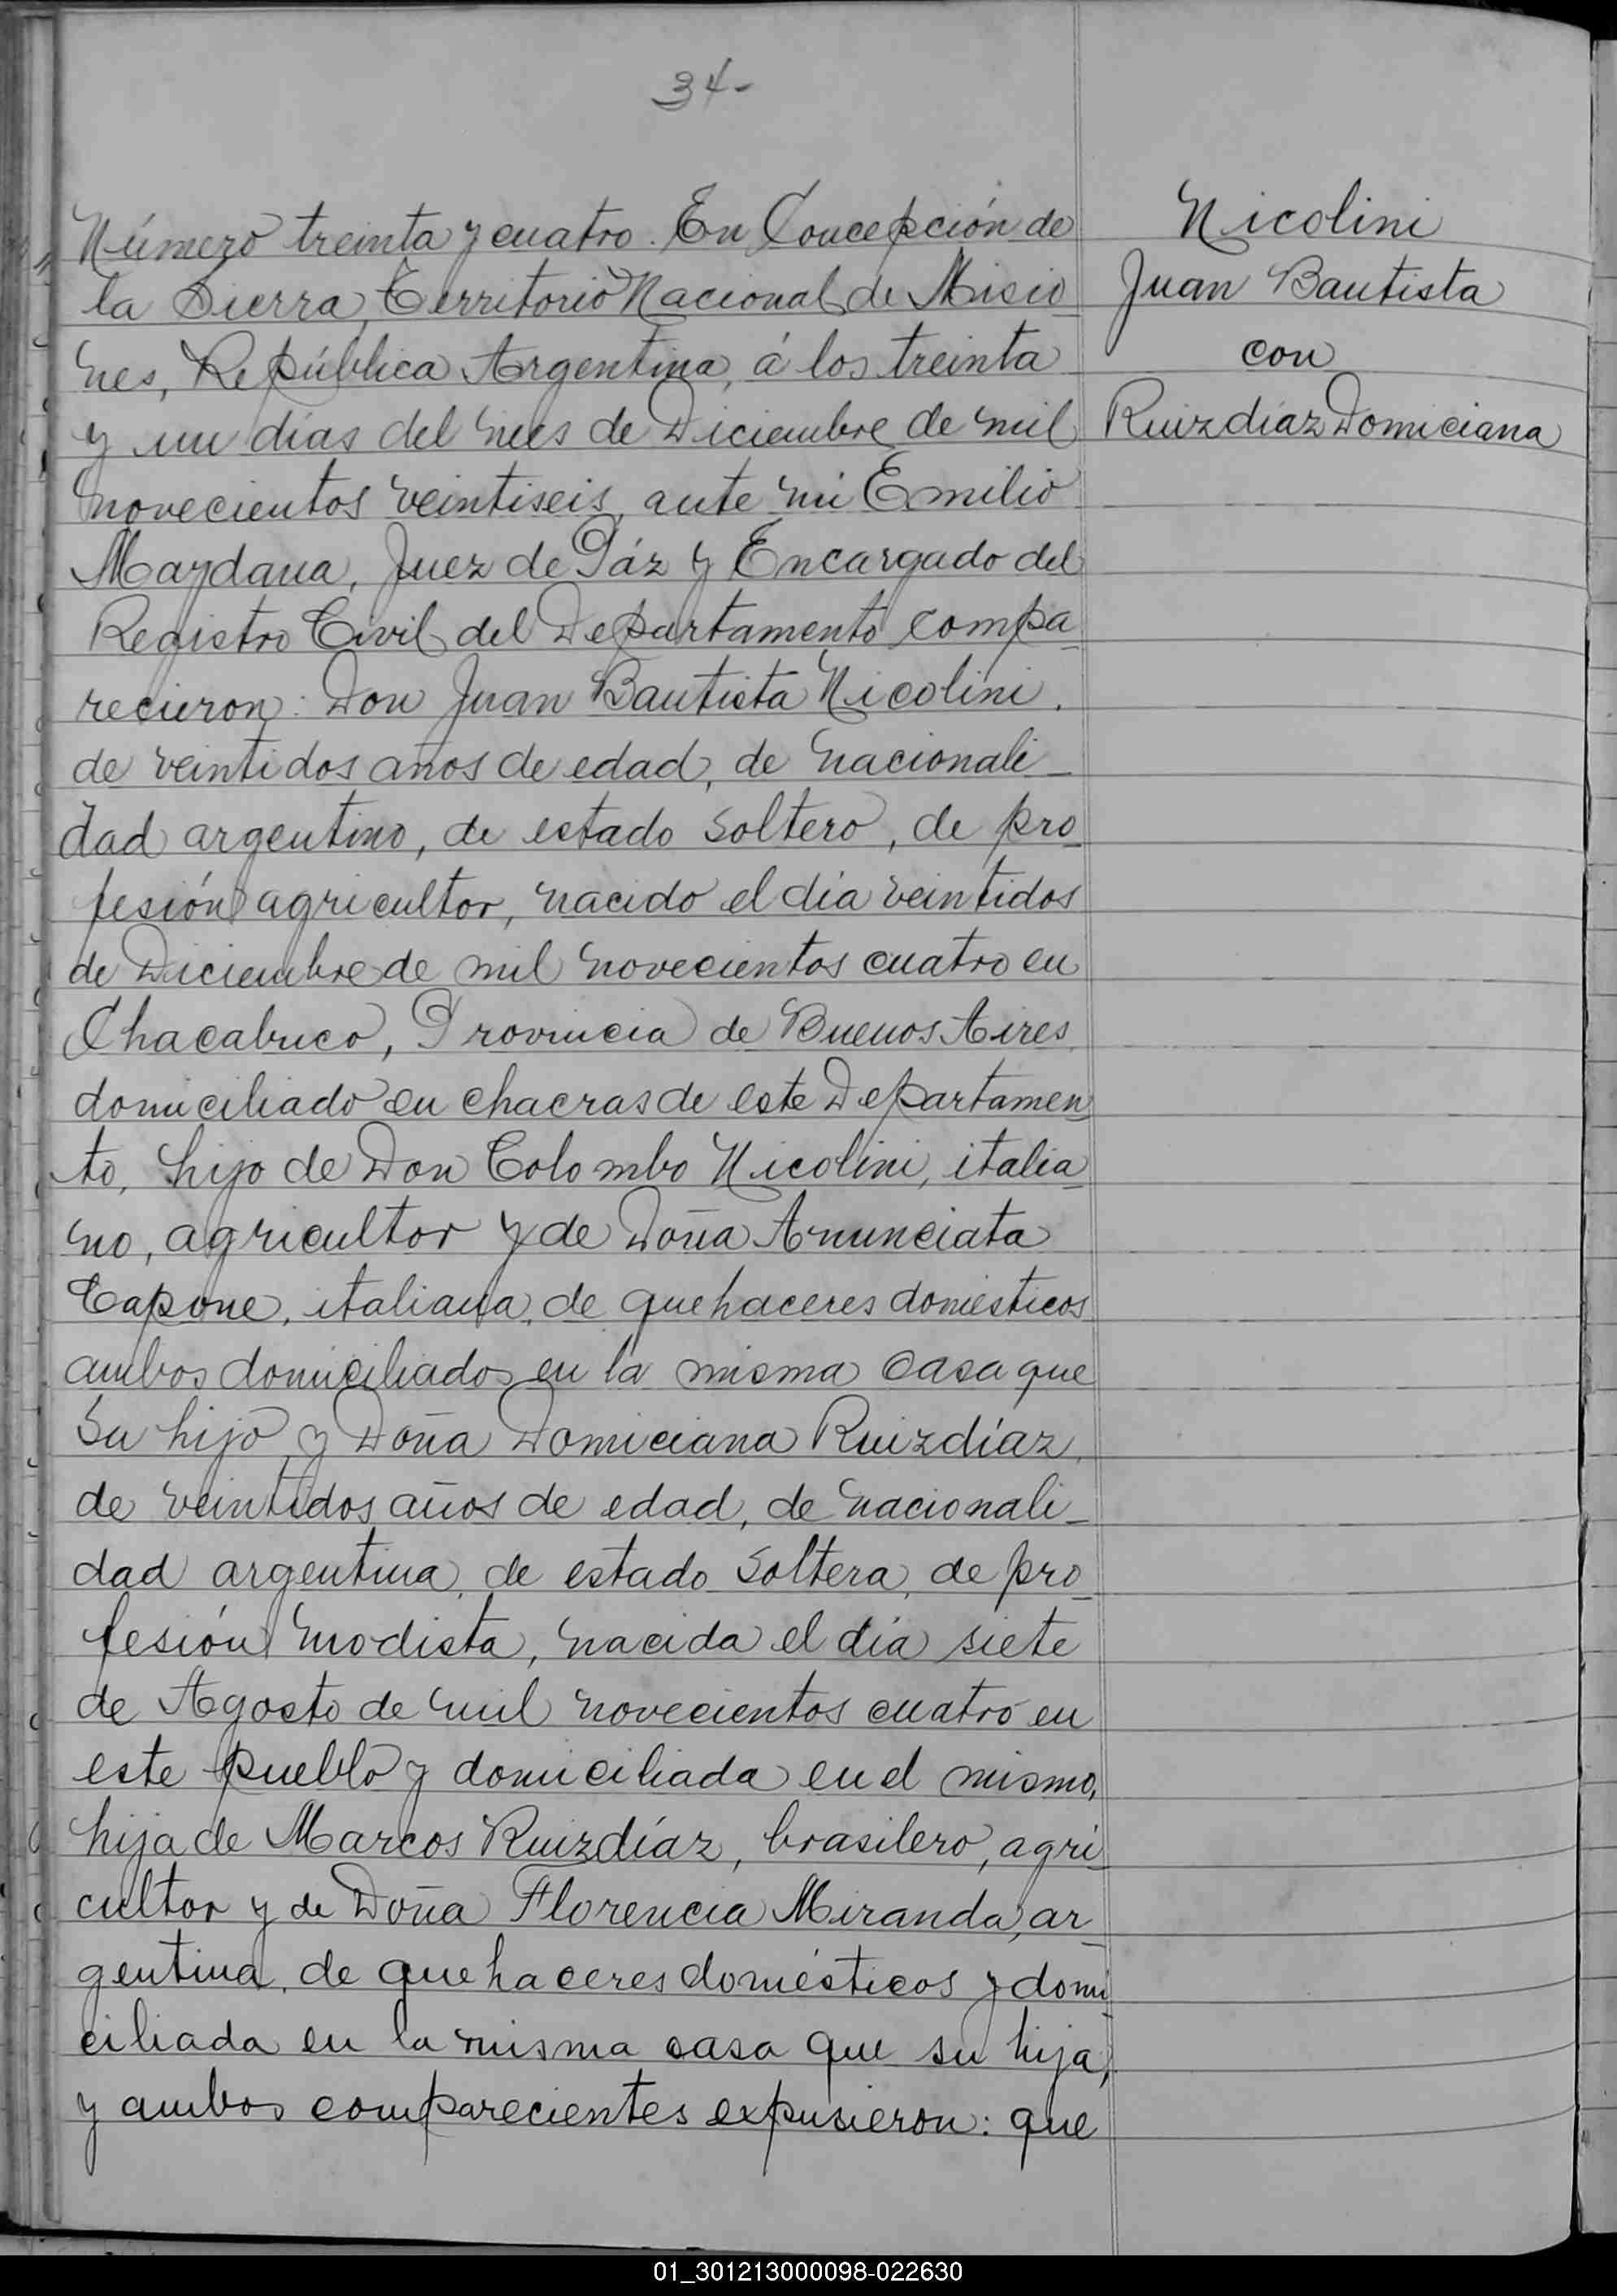 34-
Número treinta y cuatro. En Concepción de
la Sierra, Territorio Nacional de Misio
nes, República Argentina, á los treinta
y un días del mes de Diciembre de mil
novecientos veintiseis, ante mi Emilio
Maydana, Juez de Páz y Encargado del
Registro Civil del Departamento compa
recieron: Don Juan Bautista Nicolini.
de veintidos años de edad, de nacionali-
dad argentino, de estado soltero, de pro
fesión agricultor, nacido el día veintidos
de Diciembre de mil novecientos cuatro en
Chacabuco, Provincia de Buenos Aires,
domiciliado en chacras de este Departamen
to, hijo de Don Colombo Nicolini, italia
no, agricultor y de Doña Anunciata
Capone, italiana, de quehaceres domésticos
ambos domiciliados en la misma casa que
su hijo, y Doña Domiciana Ruizdíaz,
de veintidos años de edad, de nacionali-
dad argentina, de estado soltera, de pro
fesión modista, nacida el día siete
de Agosto de mil novecientos cuatro en
este pueblo y domiciliada en el mismo,
hija de Marcos Ruizdíaz, brasilero, agri
cultor y de Doña Florencia Miranda, ar
gentina, de quehaceres domésticos y domi
ciliada en la misma casa que su hija,
y ambos comparecientes expusieron: que
Nicolini
Juan Bautista
con
Ruizdíaz Domiciana
01_301213000098-022630